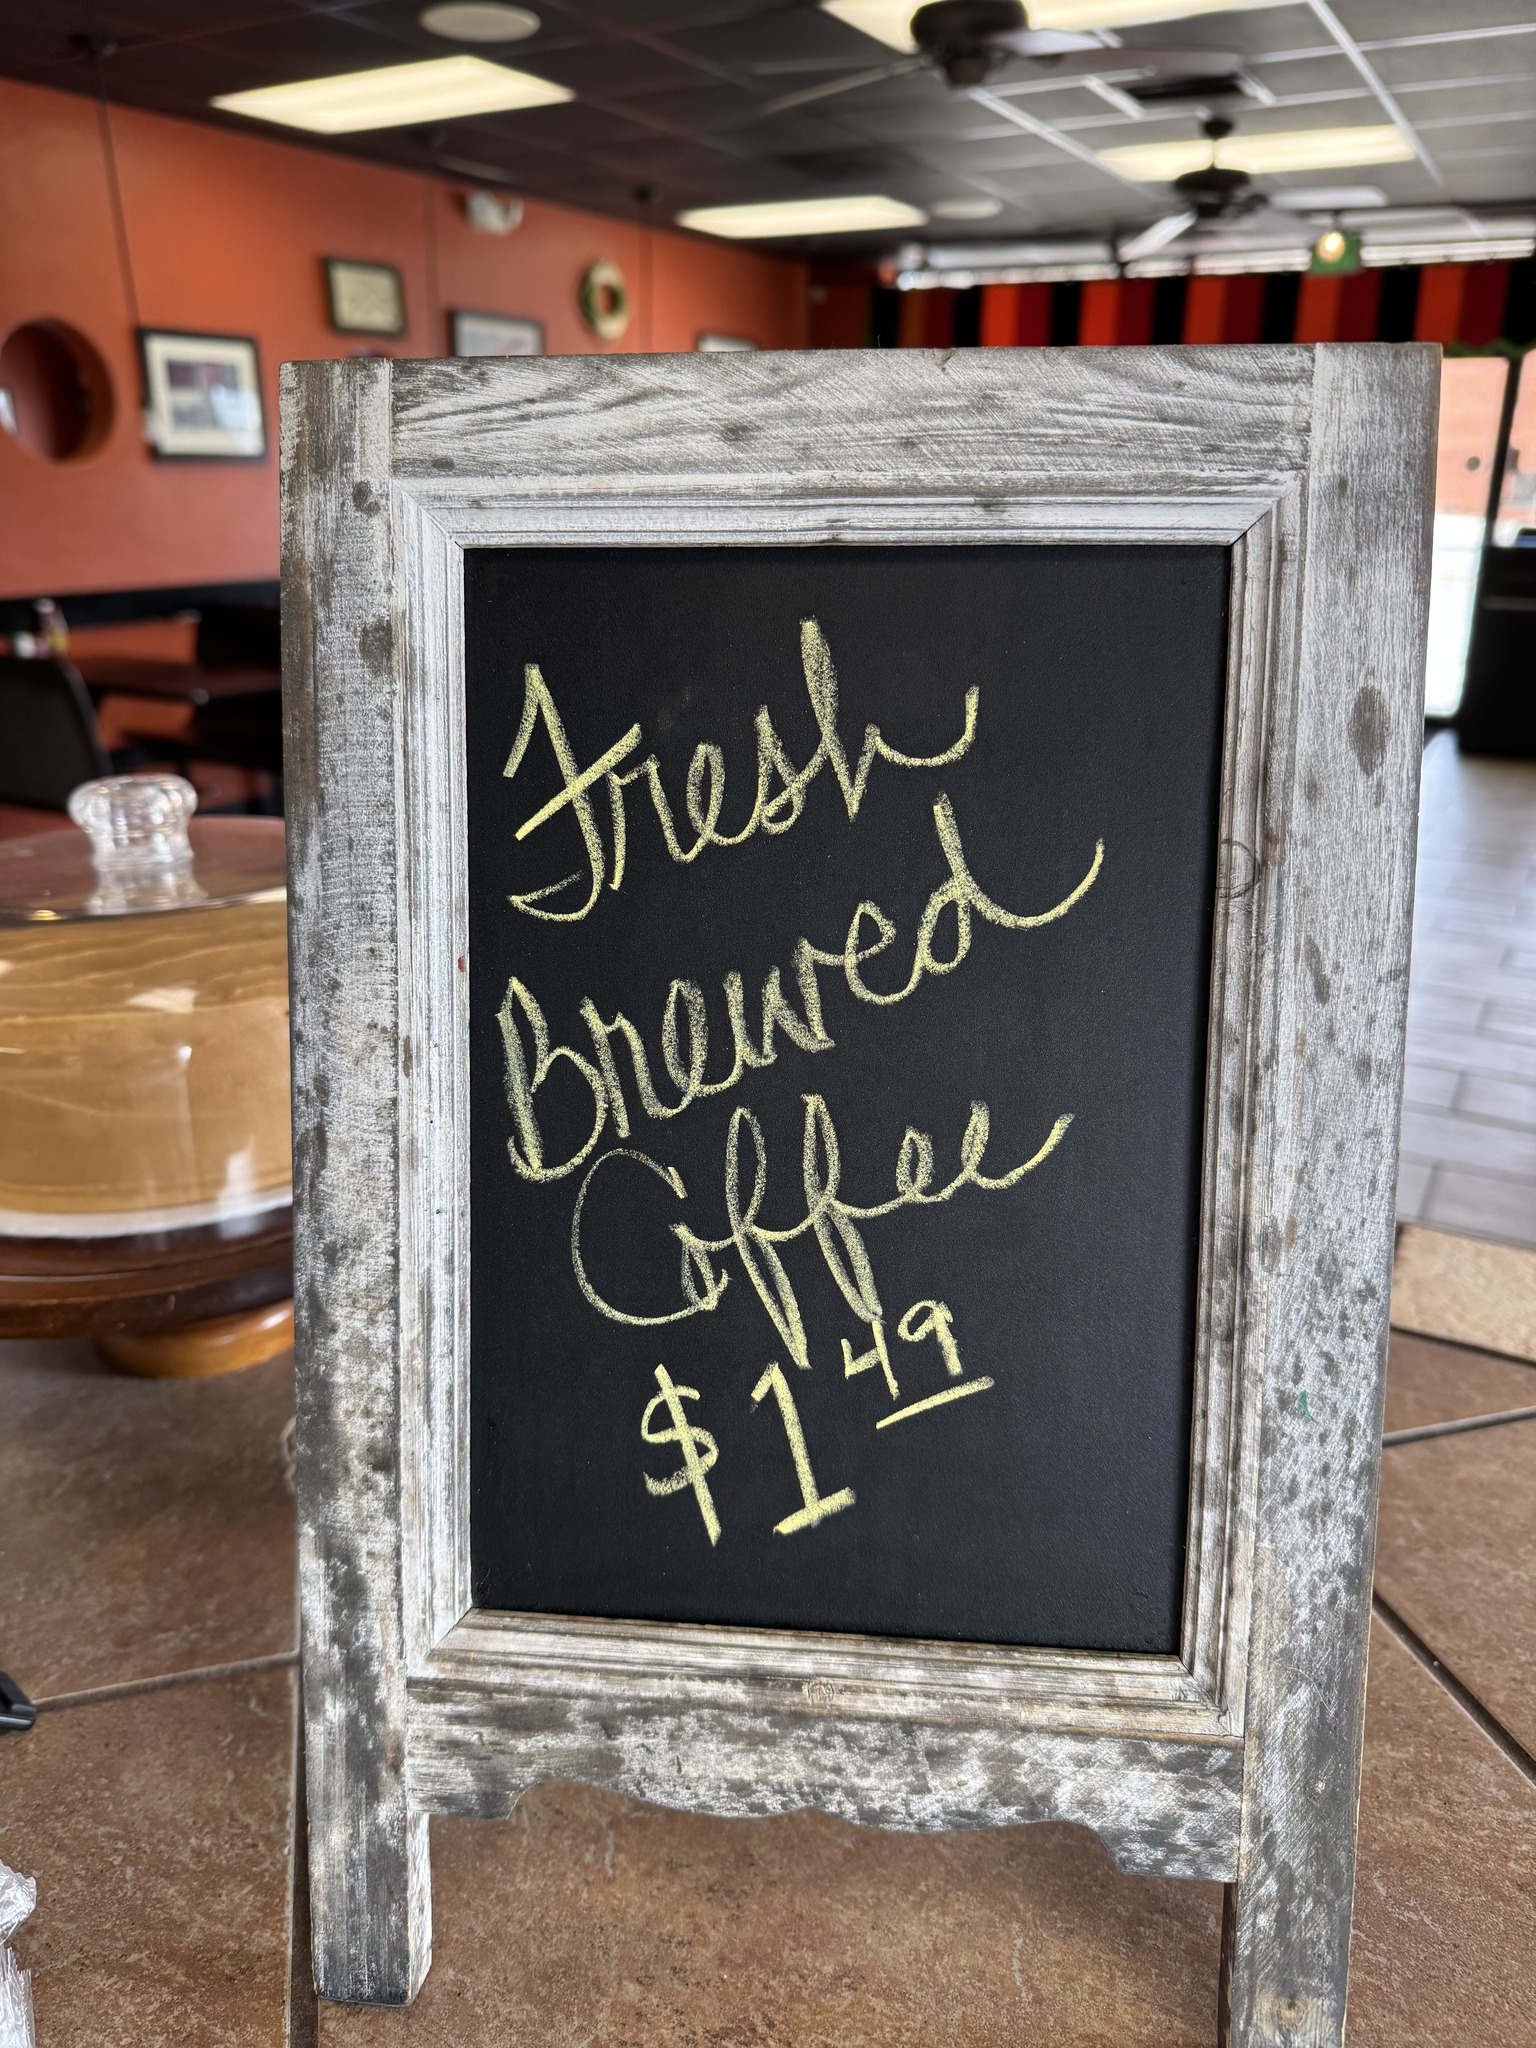 Fresh
Brewed
Coffee
$1 49